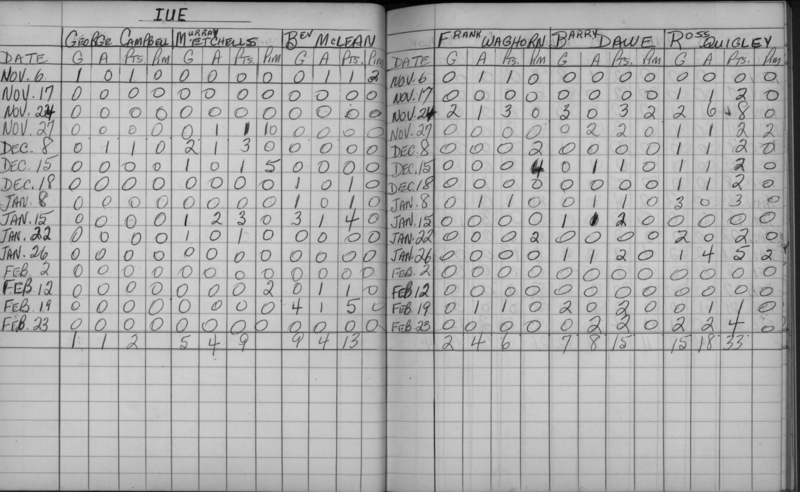 IUE
GEORGE CAMPBELL MURRAY ETCHELLS BEV MCLEAN
DATE G A Pts. Pim G A Pts. Pim G A Pts. Pim
NOV. 6 1 0 1 0 0 0 0 0 0 1 1 2
NOV. 17 0 0 0 0 0 0 0 0 0 0 0 0
NOV. 24 0 0 0 0 0 0 0 0 0 0 0 0
NOV. 27 0 0 0 0 0 1 1 10 0 0 0 0
DEC. 8 0 1 1 0 2 1 3 0 0 0 0 0
DEC. 15 0 0 0 0 1 0 1 5 0 0 0 0
DEC. 18 0 0 0 0 0 0 0 0 1 0 1 0
JAN. 8 0 0 0 0 0 0 0 0 1 0 1 0
JAN. 15 0 0 0 0 1 2 3 0 3 1 4 0
JAN. 22 0 0 0 0 1 0 1 0 0 0 0 0
JAN. 26 0 0 0 0 0 0 0 0 0 0 0 0
FEB. 2 0 0 0 0 0 0 0 0 0 0 0 0
FEB 12 0 0 0 0 0 0 0 2 0 1 1 0
FEB. 19 0 0 0 0 0 0 0 0 4 1 5 0
FEB. 23 0 0 0 0 0 0 0 0 0 0 0 0
1 1 2 5 4 9 9 4 13
FRANK WAGHORN BARRY DAWE ROSS QUIGLEY
DATE G A Pts. Pim G A Pts. Pim G A Pts. Pim
NOV. 6 0 1 1 0 0 0 0 0 0 0 0 0
NOV. 17 0 0 0 0 0 0 0 0 1 1 2 0
NOV. 24 2 1 3 0 3 0 3 2 2 6 8 0
NOV. 27 0 0 0 0 0 2 2 0 1 1 2 2
DEC. 8 0 0 0 2 0 0 0 0 1 1 2 0
DEC. 15 0 0 0 4 0 1 1 0 1 1 2 0
DEC. 18 0 0 0 0 0 0 0 0 1 1 2 0
JAN. 8 0 1 1 0 0 1 1 0 3 0 3 0
JAN. 15 0 0 0 0 1 1 2 0 0 0 0 0
JAN. 22 0 0 0 2 0 0 0 0 2 0 2 0
JAN. 26 0 0 0 0 1 1 2 0 1 4 5 2
FEB. 2 0 0 0 0 0 0 0 0 0 0 0 0
FEB 12 0 0 0 0 0 0 0 0 0 0 0 0
FEB. 19 0 1 1 0 2 0 2 0 0 1 1 0
FEB. 23 0 0 0 0 0 2 2 0 2 2 4 0
2 4 6 7 8 15 15 18 33